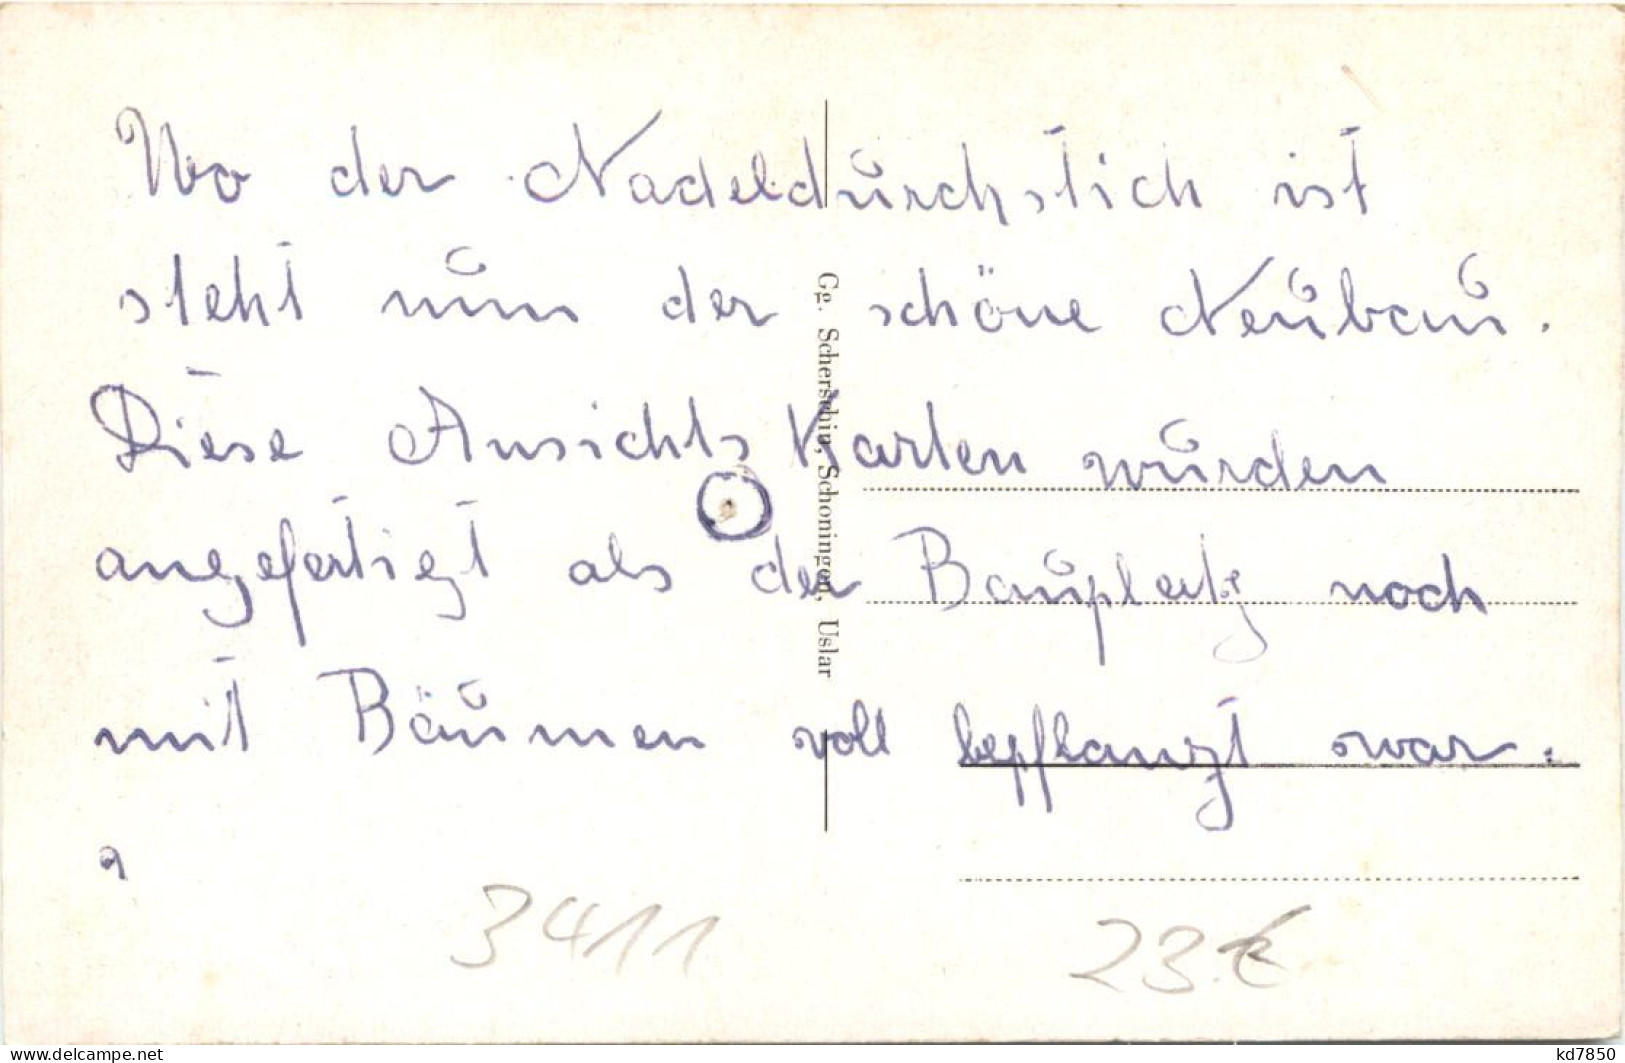 Wo der Nadeldurchstich ist
steht nun der schöne Neubau.
Diese Ansichts Karten wurden
angefertigt als der Bauplatz noch
mit Bäumen voll bepflanzt war.
Gg. Scherschin, Schoningen, Uslar
3411
23.€
www.delcampe.net
kd7850